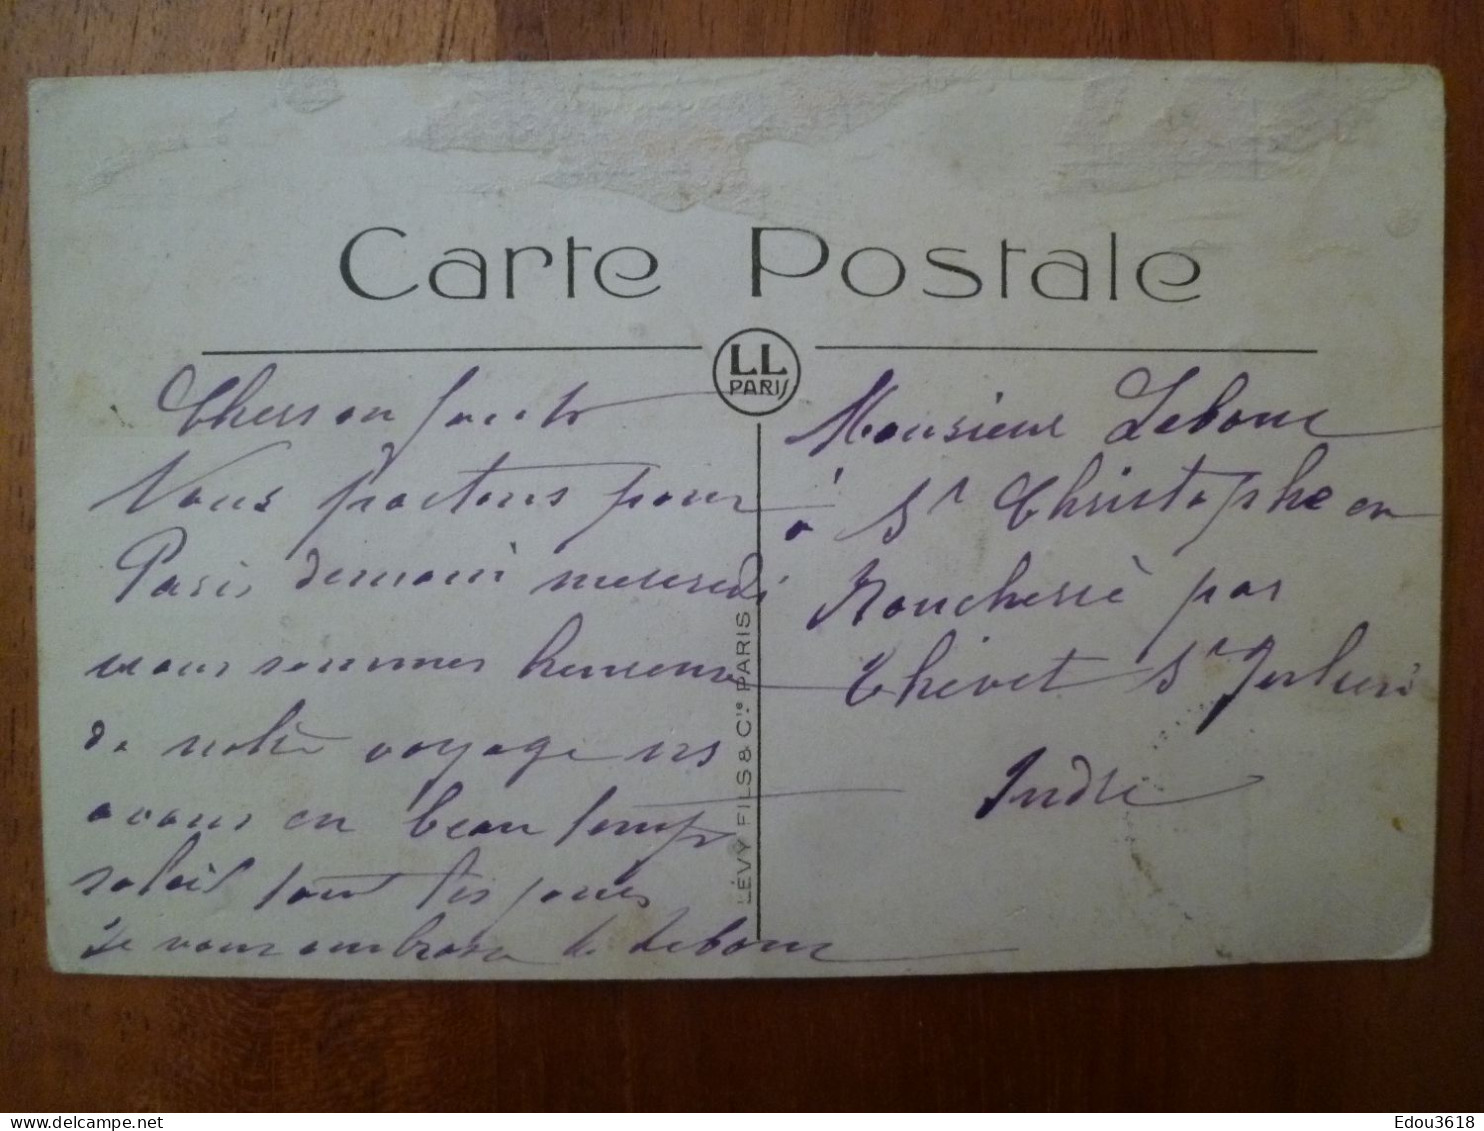 Carte Postale
LL
PARIS
Nous partons pour
Paris demain mercredi
nous sommes heureux
de notre voyage ns
avons eu beau temps
soleil tout les jours
Je vous embrasse
LÉVY FILS & Cie PARIS
Monsieur Leboue
à St Christophe en
Boucherie par
Thevet St Julien
Indre
Edou3618